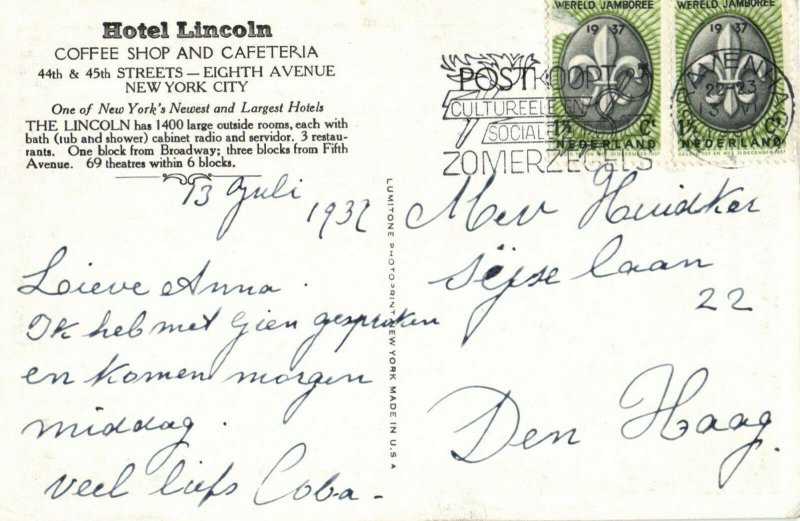 Hotel Lincoln
COFFEE SHOP AND CAFETERIA
44th & 45th STREETS — EIGHTH AVENUE
NEW YORK CITY
One of New York's Newest and Largest Hotels
THE LINCOLN has 1400 large outside rooms, each with
bath (tub and shower) cabinet radio and servidor. 3 restau-
rants. One block from Broadway; three blocks from Fifth
Avenue. 69 theatres within 6 blocks.
13 Juli
1937
Lieve Anna.
Ik heb met Gien gesproken
en komen morgen
middag.
veel liefs Coba-
LUMITONE PHOTOPRINT NEW YORK MADE IN U.S.A
WERELD JAMBOREE
1937
NEDERLAND
WERELD JAMBOREE
1937
NEDERLAND
POST KOOPT
CULTUREELE EN
SOCIALE
ZOMERZEGELS
22-23
Mevr
laan
22
Den Haag.